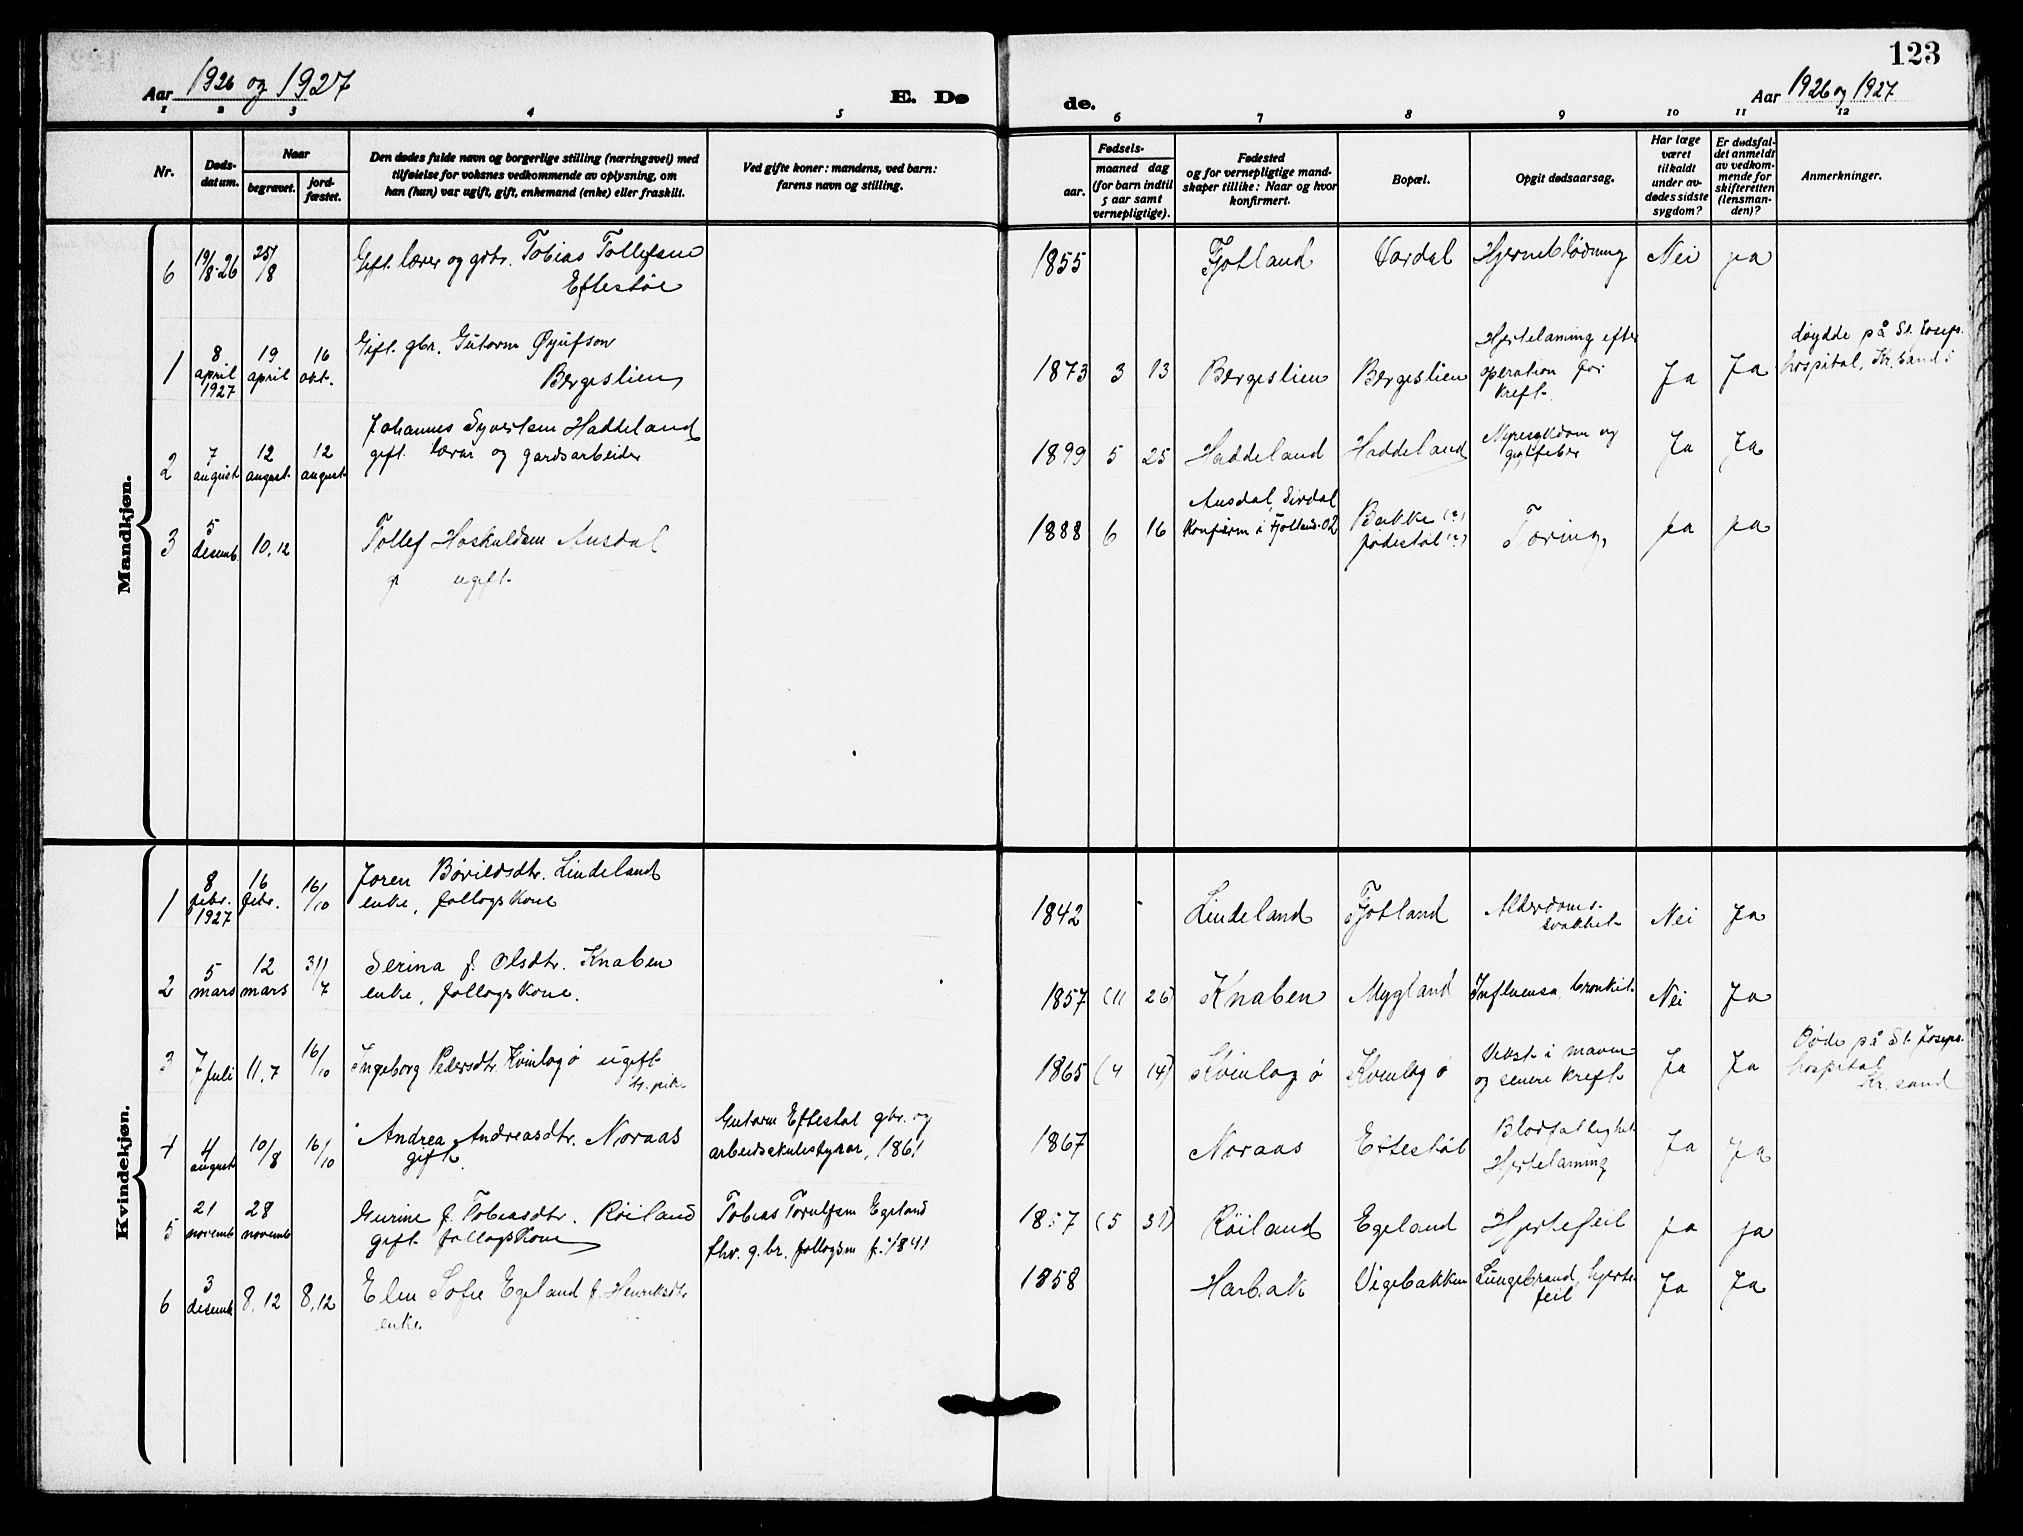 123
Aar 1926 og 1927
E. Dø
de.
Aar 1926 og 1927
1 2 3 4 5 6 7 8 9 10 11 12
Nr.
Døds-
datum.
Naar
begravet.
jord-
fæstet.
Den dødes fulde navn og borgerlige stilling (næringsvei) med
tilføielse for voksnes vedkommende av oplysning, om
han (hun) var ugift, gift, enkemand (enke) eller fraskilt.
Ved gifte koner: mandens, ved barn:
farens navn og stilling.
Fødsels-
aar.
maaned dag
(for barn indtil
5 aar samt
vernepligtige).
Fødested
og for vernepligtige mand-
skaper tillike: Naar og hvor
konfirmert.
Bopæl.
Opgit dødsaarsag.
Har læge
været
tilkaldt
under av-
dødes sidste
sygdom?
Er dødsfal-
det anmeldt
av vedkom-
mende for
skifteretten
(lensman-
den)?
Anmerkninger.
Mandkjøn.
6 19/8-26 25/8 Gift. lærer og gbr. Tobias Tollefsen
Eftestøl
1855 Fjotland Vordal Hjerneblødning Nei ja
1 8 april 1927 19 april 16 okt. Gift. gbr. Gutorm Øyufson
Bergeslien
1873 3 13 Bergeslien Bergeslien Hjertelaming efter
operation for
kreft. Ja Ja døydde på St. Joseps
hospital, Kr. sand s
2 7 august 12 august 12 august Johannes Syvertsen Haddeland
gift. lærar og gardsarbeider
1899 5 25 Haddeland Haddeland Nyresykdom og
giftfeber Ja Ja
3 5 desemb. 10.12 Tollef Hoskuldsen Ausdal
ugift.
1888 6 16 Ausdal, Sirdal
Konfirm i Fjotland. 02 Bakke (?)
fødestøl (?) Tæring, ja ja
Kvindekjøn.
1 8 febr. 1927 16 febr. 16/10 Joren Bøvildsdtr. Lindeland
enke, follogskone
1842 Lindeland Fjotland Alderdoms-
svakhet Nei Ja
2 5 mars 12 mars 31/7 Serina f. Olsdtr. Knaben
enke, follogskone.
1857 (11 26) Knaben Mygland Influensa, bronkit. Nei Ja
3 7 juli 11.7 16/10 Ingeborg Pedersdtr. Kvinlog ø ugift
1865 (4 14) Kvinlog ø Kvinlog ø Vekst i maven
og senere kreft. Ja Ja Døde på St. Joseps
hospital
Kr. sand
4 4 august 10/8 16/10 Andrea Andreasdtr. Noraas
gift. Gutorm Eftestøl gbr. og
arbeidsskulestyrar, 1861
1867 Noraas Eftestøl Blodfattighet
Hjertelaming Ja Ja
5 21 novemb 28 novemb Gurine f. Tobiasdtr. Røiland
gift. follogskone Tobias Torulfsen Egeland
fhv. g.br. follogsm f. 1841
1857 (5 31) Røiland Egeland Hjertefeil ja ja
6 3 desemb 8.12 8.12 Elen Sofie Egeland f. Henriksdtr
enke
1858 Harbak Vigebakken Lungebrand, hjerte
feil Ja Ja